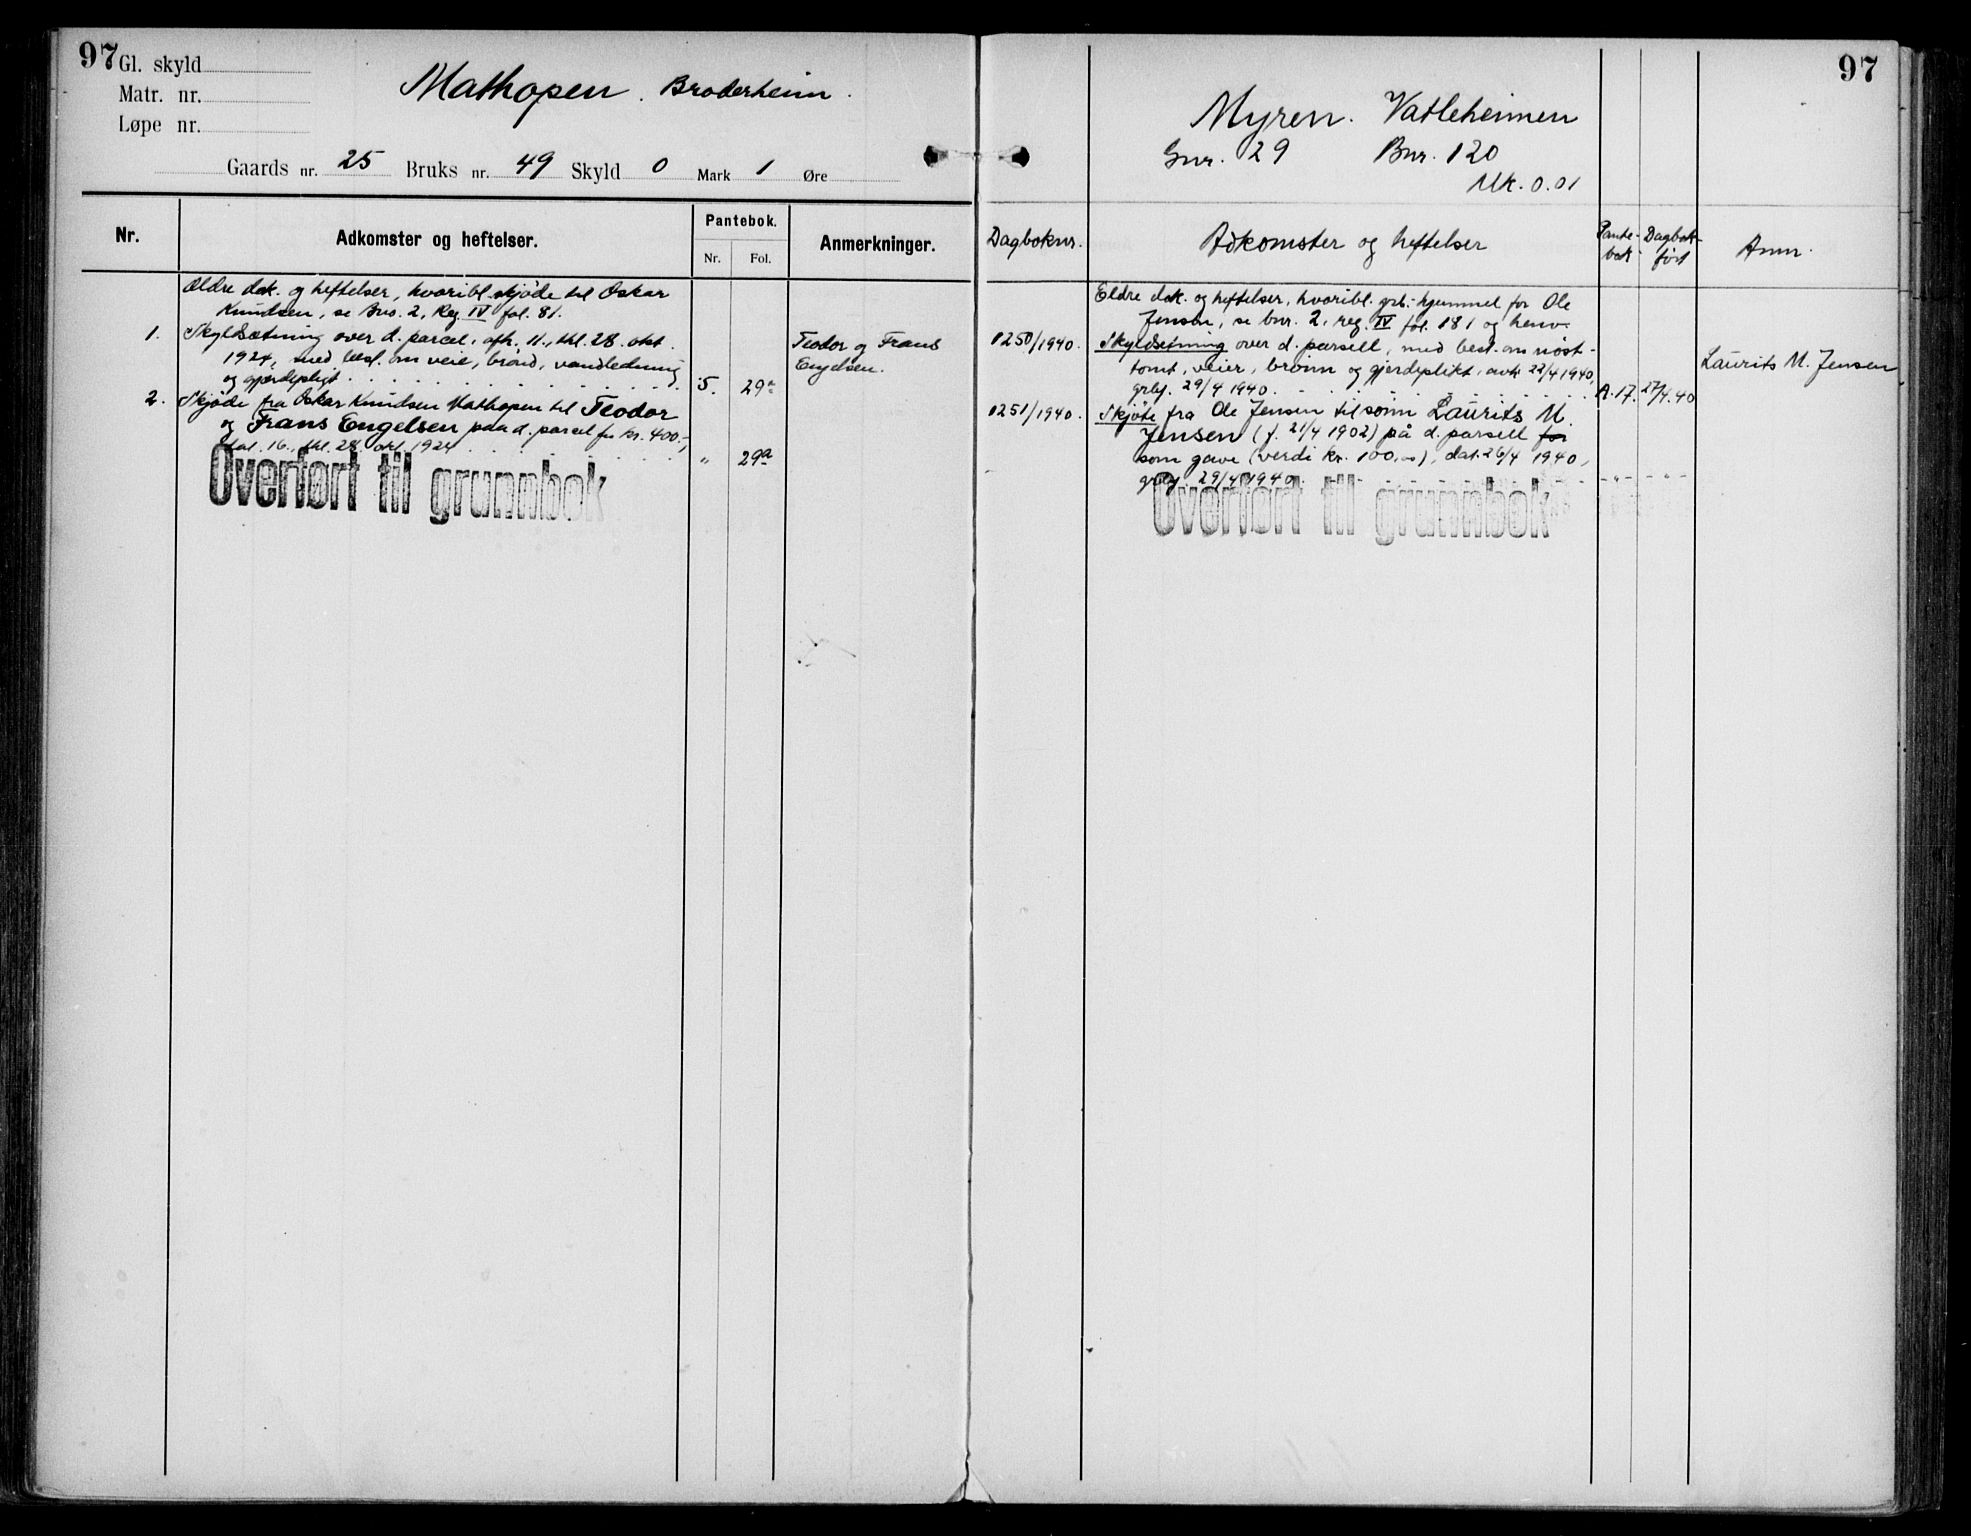 97
Gl. skyld
Matr. nr.
Løpe nr.
Mathopen. Broderheim.
Gaards nr. 25 Bruks nr. 49 Skyld 0 Mark 1 Øre
Nr.
Adkomster og heftelser.
Pantebok.
Nr. Fol.
Anmerkninger.
Ældre dok. og heftelser, hvoribl. skjøde til Oskar
Knudsen, se Brno. 2, Reg. IV fol. 81.
1. Skyldsætning over d. parcel, afh. 11., thl. 28. okt.
1924, med best. om veie, brønd, vandledning
og gjærdepligt. 5. 29a
Teodor og Frans
Engelsen.
2. Skjøde fra Oskar Knudsen Mathopen til Teodor
og Frans Engelsen paa d. parcel for kr. 400.-,
dat. 16., thl. 28. okt. 1924 " 29a
Overført til grunnbok
97
Myren. Vatleheimen
Gnr. 29 Bnr. 120
Mk. 0.01
Dagboknr.
Adkomster og heftelser
Pante-
bok
Dagbok-
ført
Anm.
Eldre dok. og heftelser, hvoribl. grb.-hjemmel for Ole
Jensen, se bnr. 2, reg. IV fol. 181 og henv.
1250/1940. Skyldsetning over d. parsell, med best. om nøst-
tomt, veier, brønn og gjerdeplikt, avh. 22/4 1940,
grlyj. 29/4 1940. A. 17. 27/4.40
Laurits M. Jensen
1251/1940. Skjøte fra Ole Jensen til sønn Laurits M.
Jensen (f. 21/4 1902) på d. parsell for
som gave (verdi kr. 100,-), dat. 26/4 1940,
grlyj. 29/4 1940. -"- -"-
Overført til grunnbok